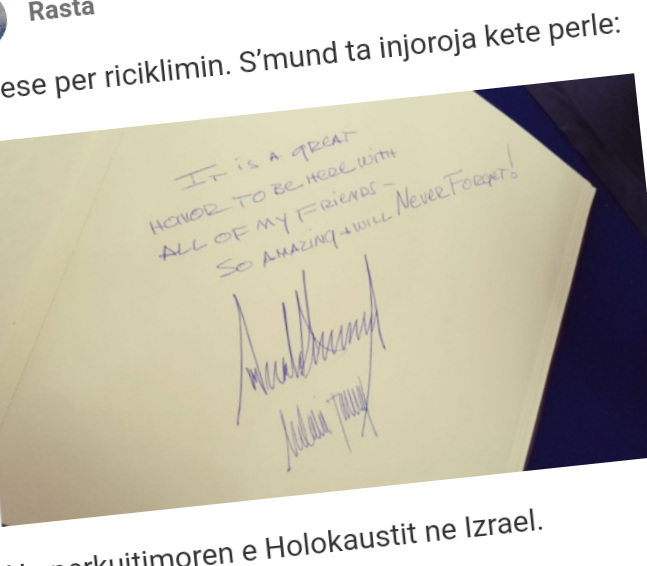 Rasta
ese per riciklimin. S’mund ta injoroja kete perle:
IT IS A GREAT
HONOR TO BE HERE WITH
ALL OF MY FRIENDS -
SO AMAZING + WILL NEVER FORGET!
e Holokaustit ne Izrael.